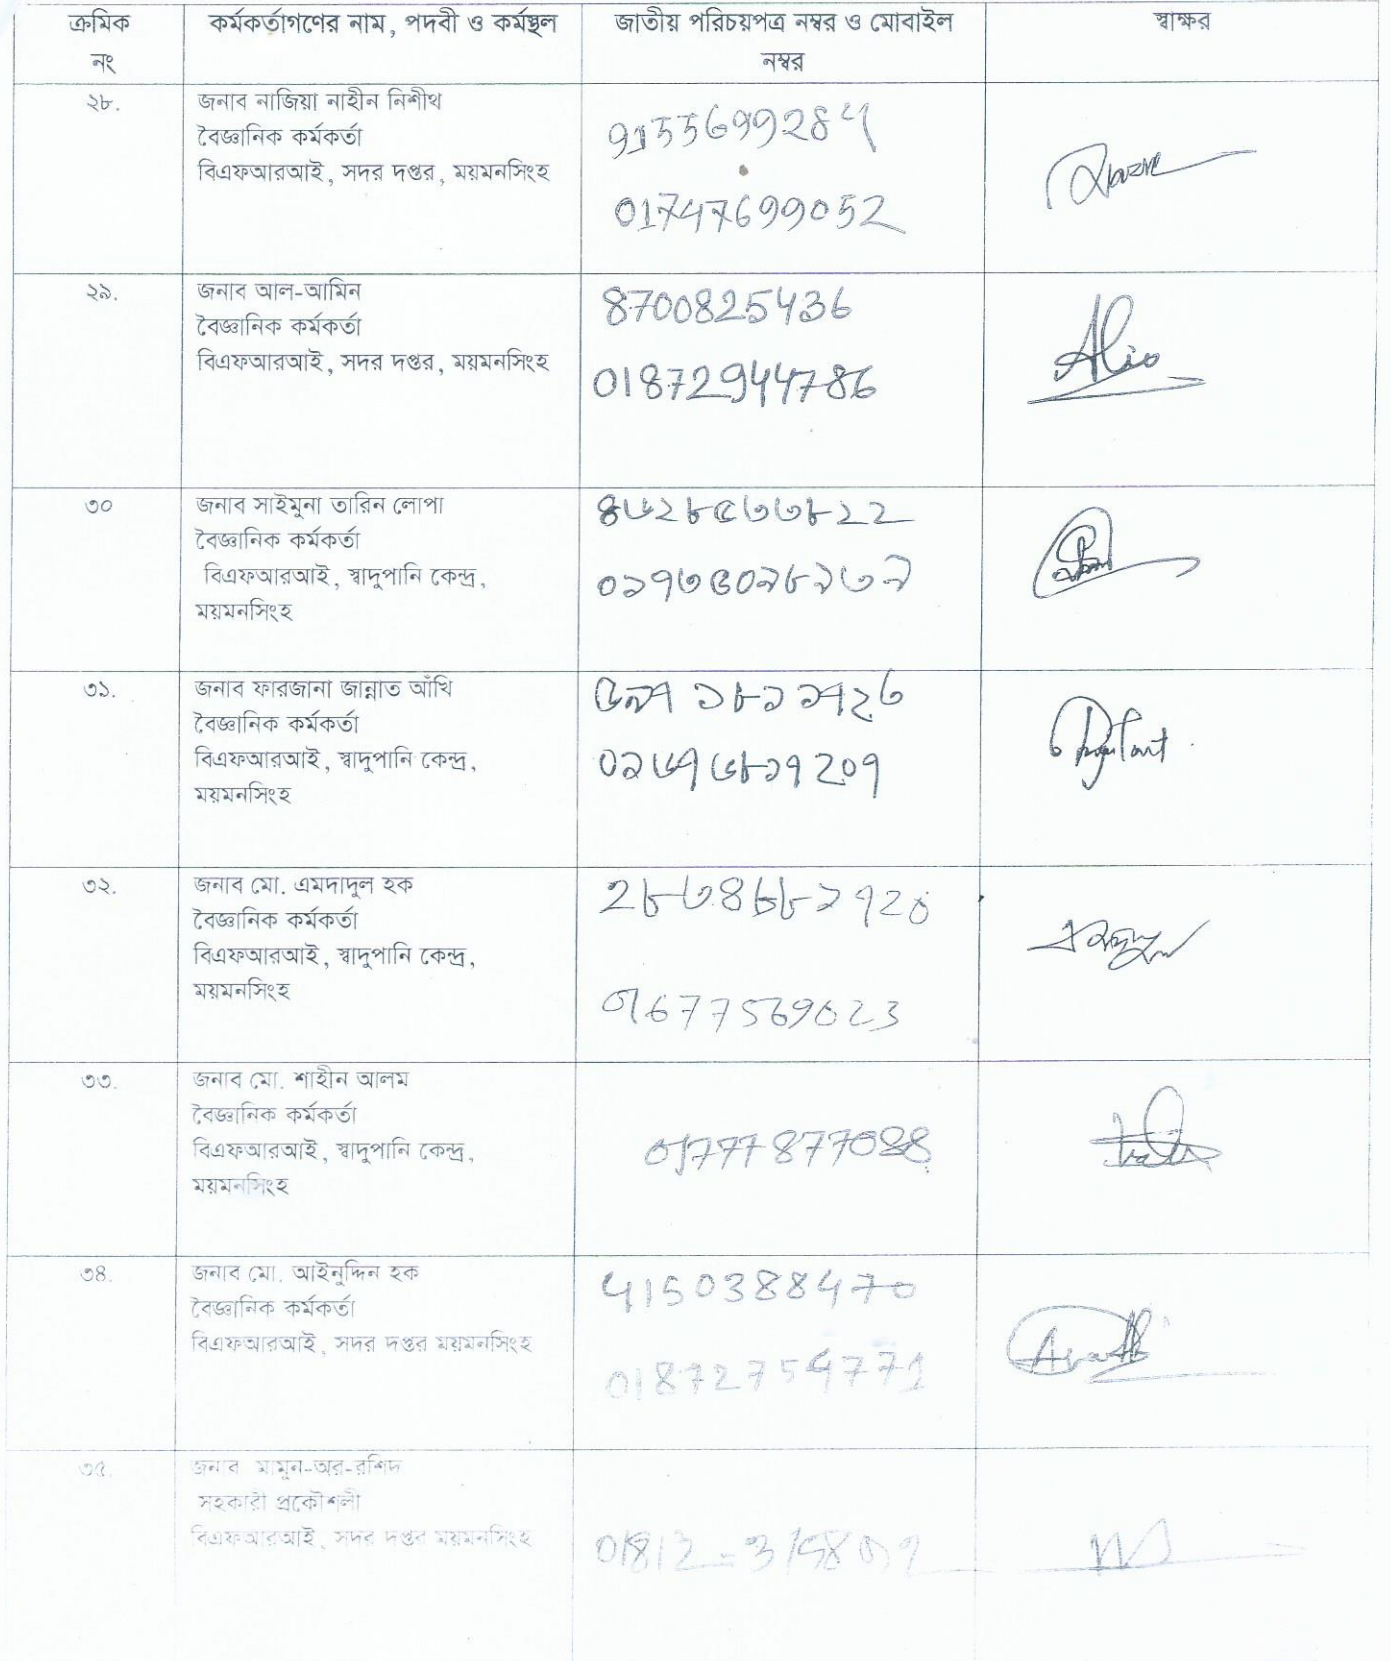 ক্রমিক নং
কর্মকর্তাগণের নাম, পদবী ও কর্মস্থল
জাতীয় পরিচয়পত্র নম্বর ও মোবাইল নম্বর
স্বাক্ষর
২৮.
জনাব নাজিয়া নাহীন নিশীথ
বৈজ্ঞানিক কর্মকর্তা
বিএফআরআই, সদর দপ্তর, ময়মনসিংহ
01747699052
২৯.
জনাব আল-আমিন
বৈজ্ঞানিক কর্মকর্তা
বিএফআরআই, সদর দপ্তর, ময়মনসিংহ
8700825436
01872944786
৩০
জনাব সাইমুনা তারিন লোপা
বৈজ্ঞানিক কর্মকর্তা
বিএফআরআই, স্বাদুপানি কেন্দ্র,
ময়মনসিংহ
৩১.
জনাব ফারজানা জান্নাত আঁখি
বৈজ্ঞানিক কর্মকর্তা
বিএফআরআই, স্বাদুপানি কেন্দ্র,
ময়মনসিংহ
৩২.
জনাব মো. এমদাদুল হক
বৈজ্ঞানিক কর্মকর্তা
বিএফআরআই, স্বাদুপানি কেন্দ্র,
ময়মনসিংহ
01677569023
৩৩.
জনাব মো. শাহীন আলম
বৈজ্ঞানিক কর্মকর্তা
বিএফআরআই, স্বাদুপানি কেন্দ্র,
ময়মনসিংহ
01777877088
৩৪.
জনাব মো. আইনুদ্দিন হক
বৈজ্ঞানিক কর্মকর্তা
বিএফআরআই, সদর দপ্তর ময়মনসিংহ
4150388470
01872754771
৩৫.
জনাব মামুন-অর-রশিদ
সহকারী প্রকৌশলী
বিএফআরআই, সদর দপ্তর ময়মনসিংহ